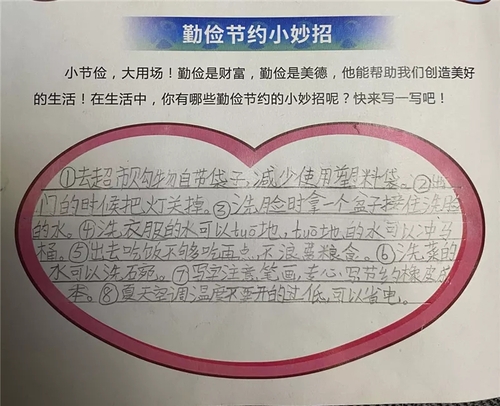 勤俭节约小妙招
小节俭，大用场！勤俭是财富，勤俭是美德，他能帮助我们创造美好
的生活！在生活中，你有哪些勤俭节约的小妙招呢？快来写一写吧！
①去超市购物自带袋子，减少使用塑料袋。②出
门的时候把灯关掉。③洗脸时拿一个盆子接住洗脸
的水。④洗衣服的水可以tuo地，tuo地的水可以冲马
桶。⑤出去吃饭不够吃再点，不浪费粮食。⑥洗菜的
水可以洗石郭。⑦写字注意笔画，专心写节约橡皮或
本。⑧夏天空调温度不要开的过低，可以省电。